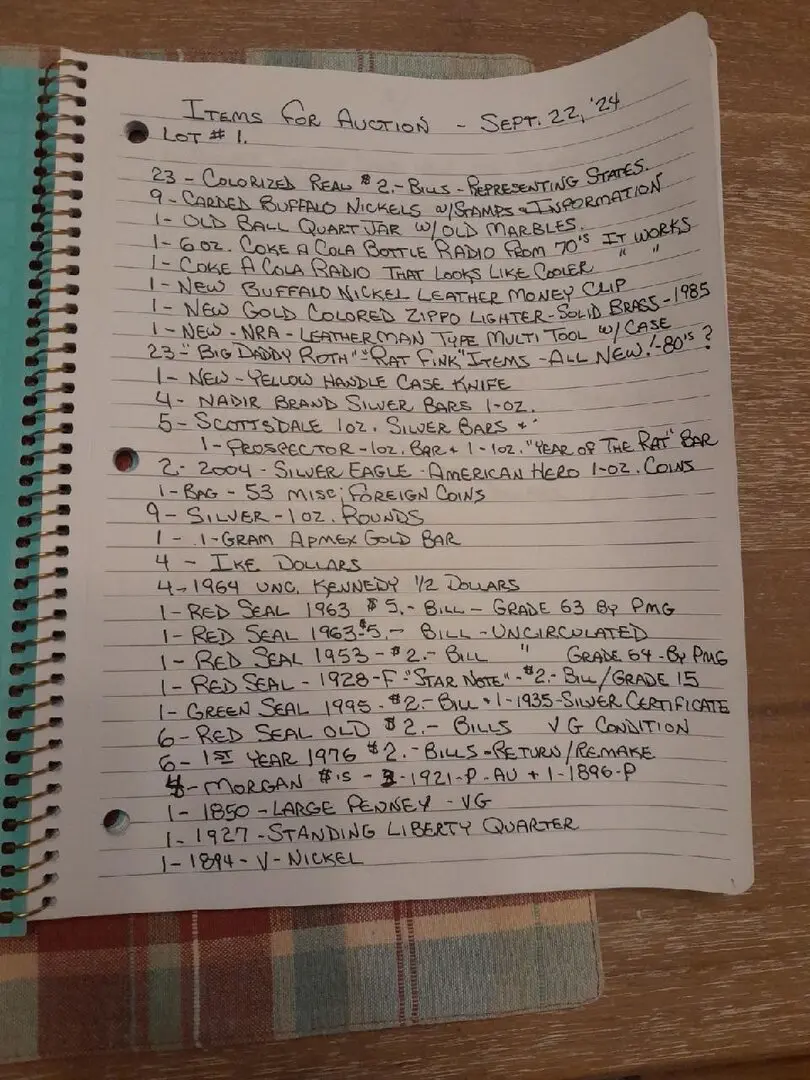 ITEMS FOR AUCTION - SEPT. 22, '24
LOT # 1.
23 - COLORIZED REAL $2.- BILLS - REPRESENTING STATES.
9 - CARDED BUFFALO NICKELS W/STAMPS & INFORMATION
1 - OLD BALL QUART JAR W/ OLD MARBLES.
1 - 6 OZ. COKE A COLA BOTTLE RADIO FROM 70'S IT WORKS
1 - COKE A COLA RADIO THAT LOOKS LIKE COOLER " "
1 - NEW BUFFALO NICKEL LEATHER MONEY CLIP
1 - NEW GOLD COLORED ZIPPO LIGHTER - SOLID BRASS - 1985
1 - NEW - NRA - LEATHERMAN TYPE MULTI TOOL W/ CASE
23 - "BIG DADDY ROTH" - "RAT FINK" ITEMS - ALL NEW! - 80'S ?
1 - NEW - YELLOW HANDLE CASE KNIFE
4 - NADIR BRAND SILVER BARS 1-OZ.
5 - SCOTTSDALE 1 OZ. SILVER BARS +
1 - PROSPECTOR - 1 OZ. BAR + 1 - 1 OZ. "YEAR OF THE RAT" BAR
2 - 2004 - SILVER EAGLE - AMERICAN HERO 1-OZ. COINS
1 - BAG - 53 MISC; FOREIGN COINS
9 - SILVER - 1 OZ. ROUNDS
1 - .1-GRAM APMEX GOLD BAR
4 - IKE DOLLARS
4 - 1964 UNC. KENNEDY 1/2 DOLLARS
1 - RED SEAL 1963 $5.- BILL - GRADE 63 BY PMG
1 - RED SEAL 1963-$5.- BILL - UNCIRCULATED
1 - RED SEAL 1953 - $2.- BILL " GRADE 64 - BY PMG
1 - RED SEAL - 1928-F - "STAR NOTE" - $2.- BILL / GRADE 15
1 - GREEN SEAL 1995 - $2.- BILL + 1 - 1935 - SILVER CERTIFICATE
6 - RED SEAL OLD $2.- BILLS VG CONDITION
6 - 1ST YEAR 1976 $2.- BILLS - RETURN / REMAKE
4 - MORGAN $'S - 3 - 1921-P - AU + 1 - 1896-P
1 - 1850 - LARGE PENNEY - VG
1 - 1927 - STANDING LIBERTY QUARTER
1 - 1894 - V - NICKEL